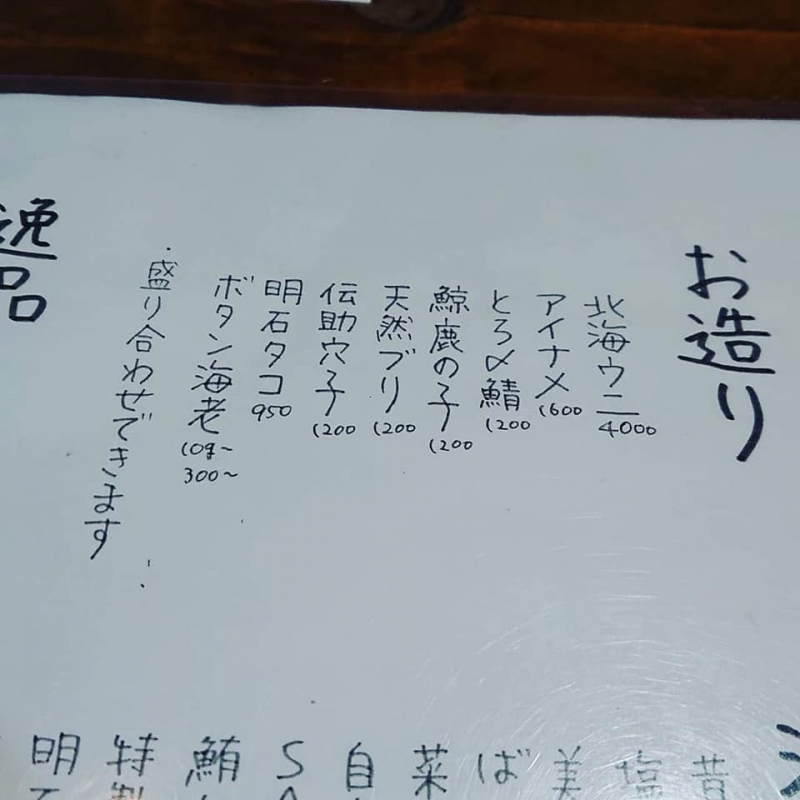 お造り
北海ウニ 4000
アイナメ 1600
とろ〆鯖 1200
鯨鹿の子 1200
天然ブリ 1200
伝助穴子 1200
明石タコ 950
ボタン海老 10g~ 300~
・盛り合わせできます
逸品
昔
塩
美
ば
菜
自
S
鮪
特製
明